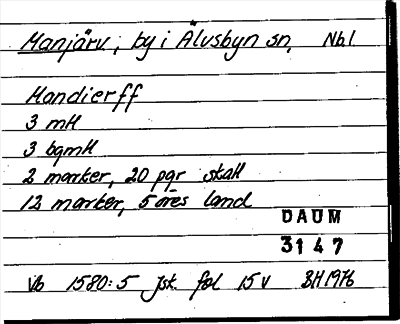 Manjärv, by i Älvsbyn sn, Nbl.
Mandierff
3 mH
3 bqmH
2 marker, 20 pgr skatt
12 marker, 5 öres land
DAUM
3147
Vb 1580:5 Jsk. fol 15 v BH 1976